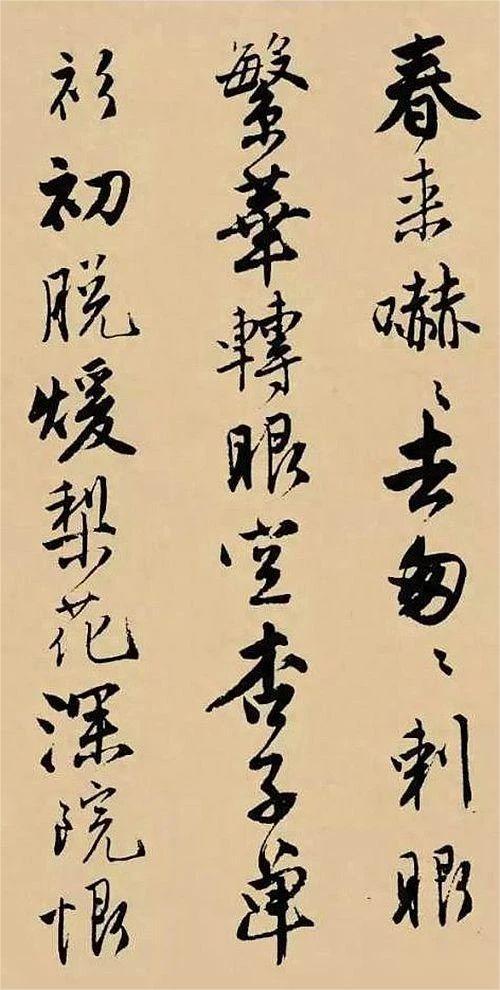 春来嚇〻去匆〻刺眼
繁華轉眼空杏子單
衫初脱煖梨花深院恨